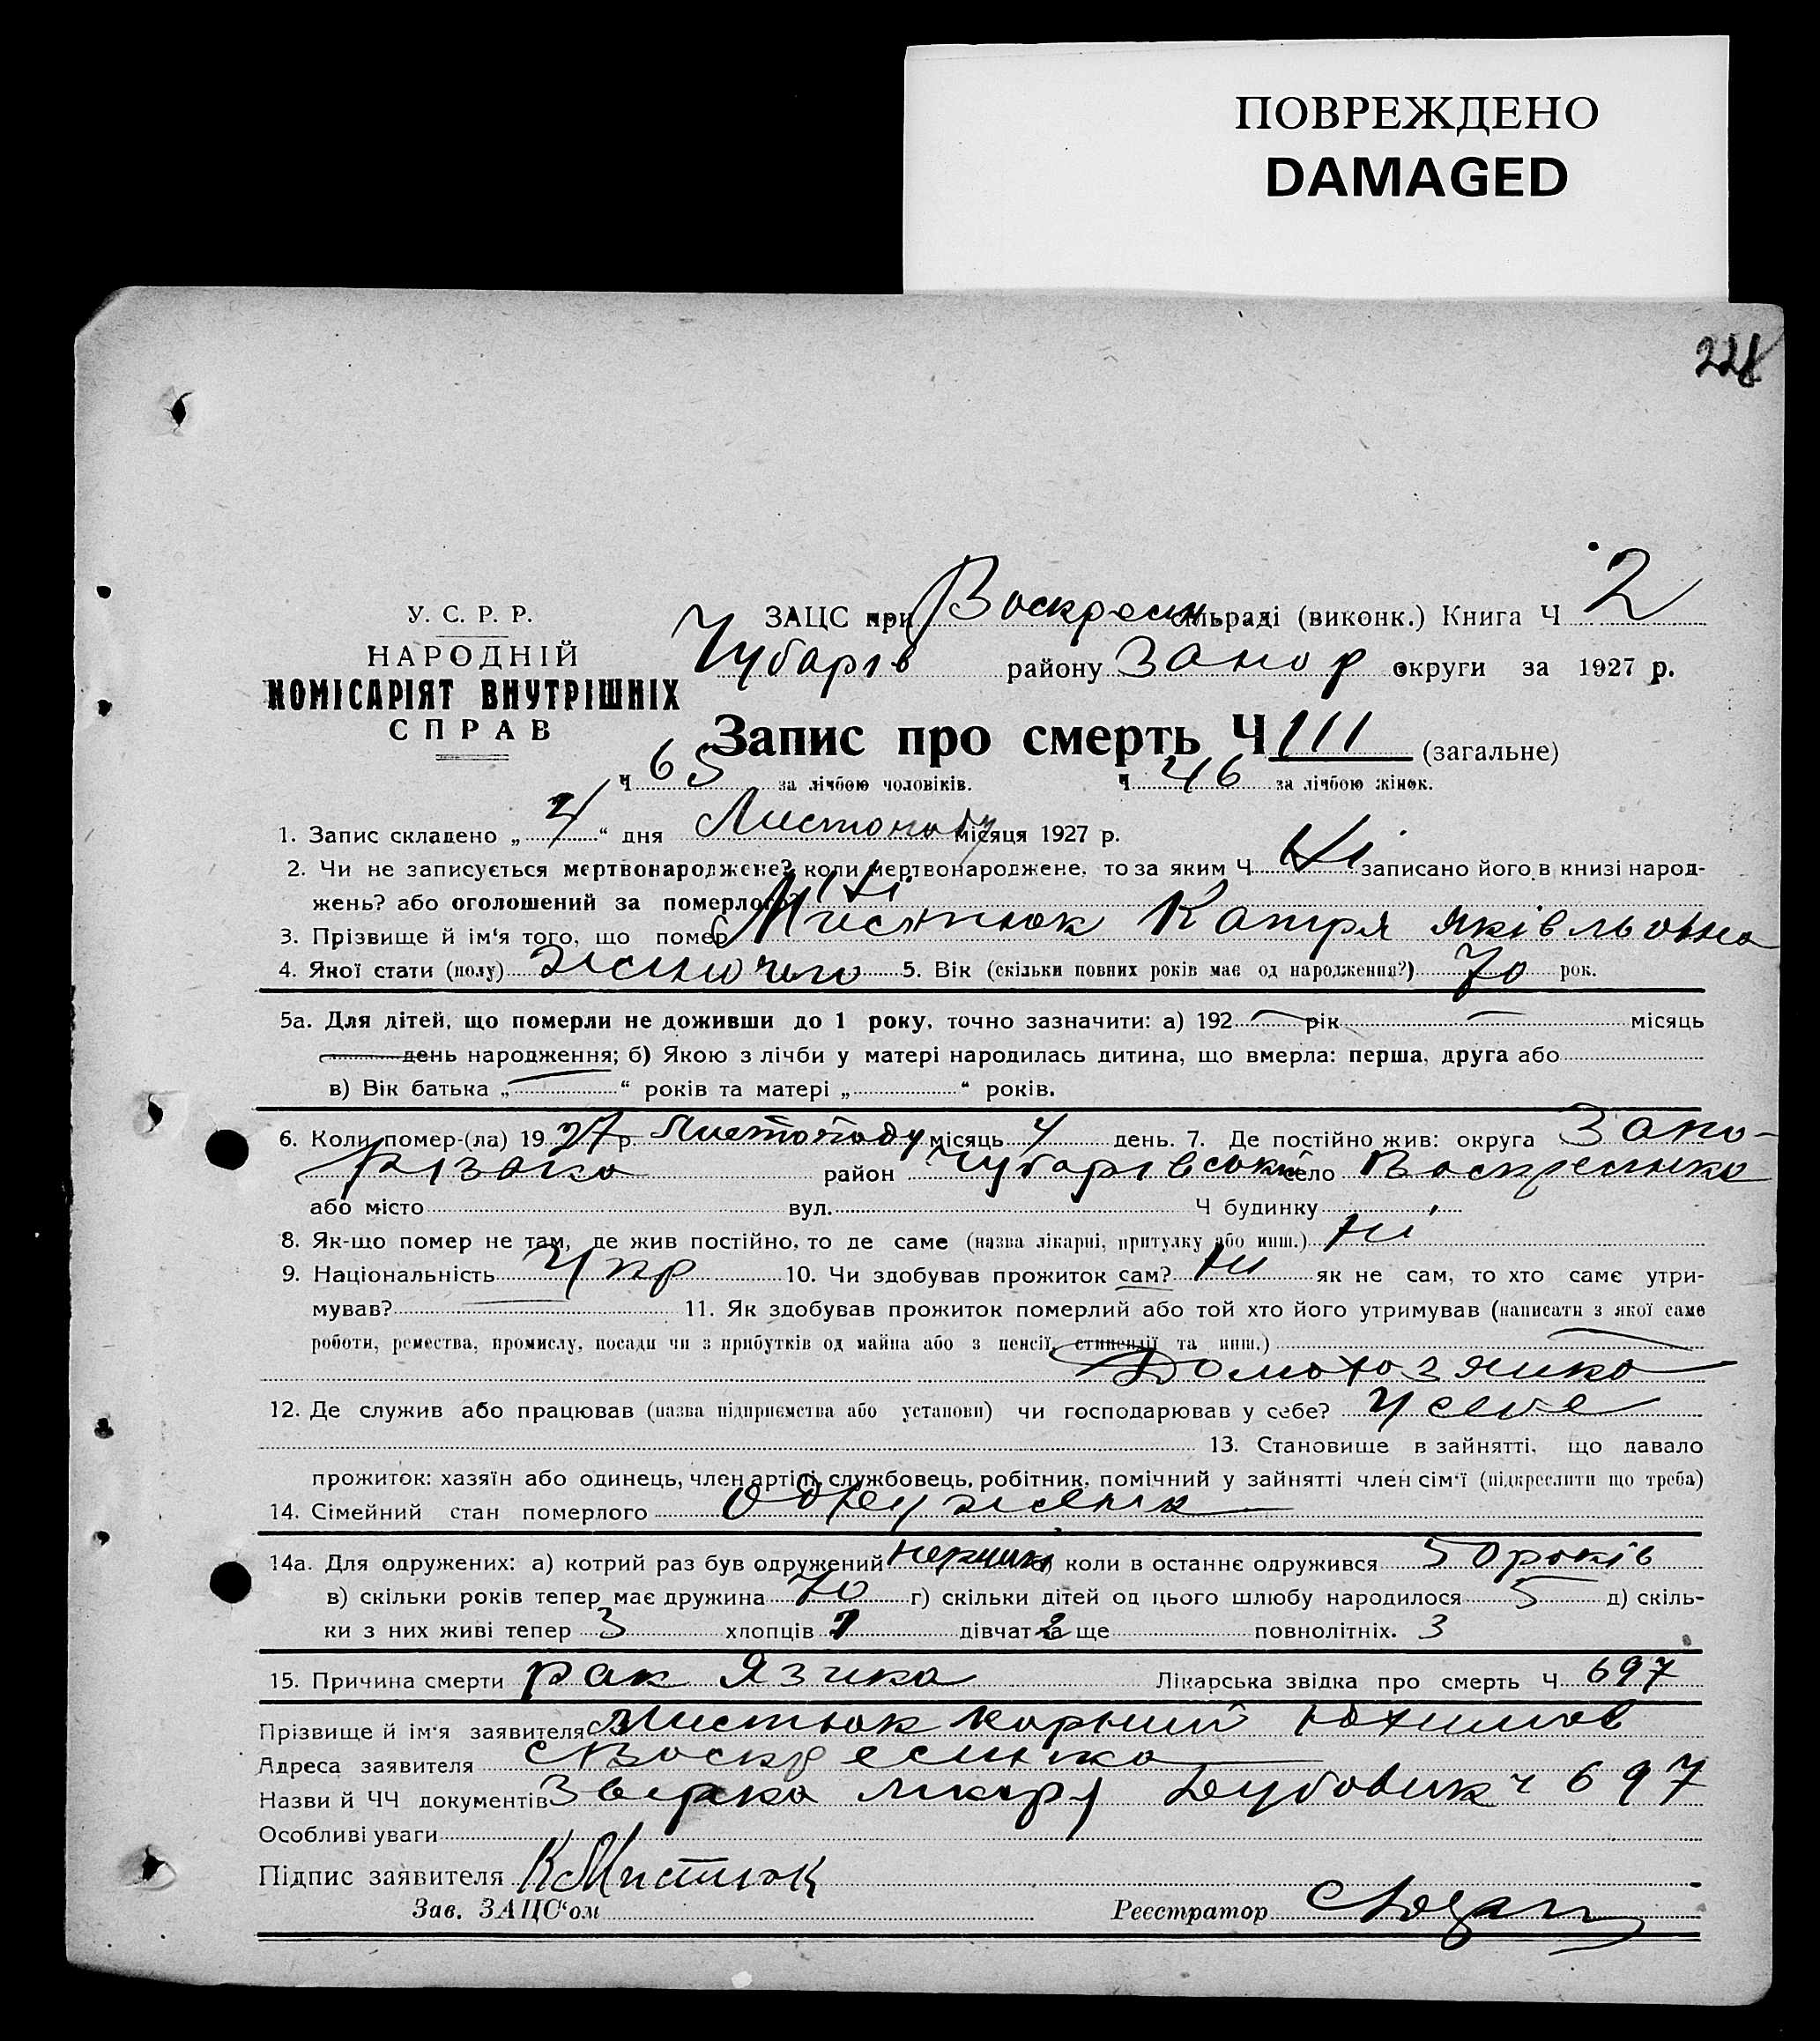 ПОВРЕЖДЕНО
DAMAGED
228
У. С. Р. Р.
НАРОДНІЙ
КОМІСАРІЯТ ВНУТРІШНІХ
СПРАВ
ЗАЦС при Воскресен сільраді (виконк.) Книга Ч 2
Чубарів району Запор округи за 1927 р.
Запис про смерть Ч 111 (загальне)
Ч 65 за лічбою чоловіків. Ч 46 за лічбою жінок.
1. Запис складено „ 4 “ дня Листопаду місяця 1927 р.
2. Чи не записується мертвонароджене? коли мертвонароджене, то за яким Ч Ні записано його в книзі народ-
жень? або оголошений за померлого? Ні
3. Прізвище й ім'я того, що помер Мистюк Катря Яківльовна
4. Якої стати (полу) жіночого 5. Вік (скільки повних років має од народження?) 70 рок.
5а. Для дітей, що померли не доживши до 1 року, точно зазначити: а) 192 — рік — місяць
день народження; б) Якою з лічби у матері народилась дитина, що вмерла: перша, друга або
в) Вік батька „ — “ років та матері „ “ років.
6. Коли помер-(ла) 19 27 р. Листопаду місяць 4 день. 7. Де постійно жив: округа Запо-
різька район Чубарівський село Воскресенка
або місто вул. Ч будинку
8. Як-що помер не там, де жив постійно, то де саме (назва лікарні, притулку або инш.) Ні
9. Національність Укр 10. Чи здобував прожиток сам? Ні як не сам, то хто саме утри-
мував? — 11. Як здобував прожиток померлий або той хто його утримував (написати з якої саме
роботи, ремества, промислу, посади чи з прибутків од майна або з пенсії, стипендії та инш.)
Домохозяйка
12. Де служив або працював (назва підприємства або установи) чи господарював у себе? У себе
13. Становище в зайнятті, що давало
прожиток: хазяїн або одинець, член артілі, службовець, робітник, помічний у зайнятті член сім'ї (підкреслити що треба)
14. Сімейний стан померлого
14а. Для одружених: а) котрий раз був одружений б) коли в останнє одружився 50 років
в) скільки років тепер має дружина 70 г) скільки дітей од цього шлюбу народилося 5 д) скіль-
ки з них живі тепер 3 хлопців 1 дівчат 2 та ще повнолітніх. 3
15. Причина смерти рак язика Лікарська звідка про смерть Ч 697
Прізвище й ім'я заявителя Мистюк Корний Юхимов
Адреса заявителя с Воскресенка
Назви й ЧЧ документів лікаря Дубовик ч 697
Особливі уваги
Підпис заявителя К Мистюк
Зав. ЗАЦС'ом Реєстратор